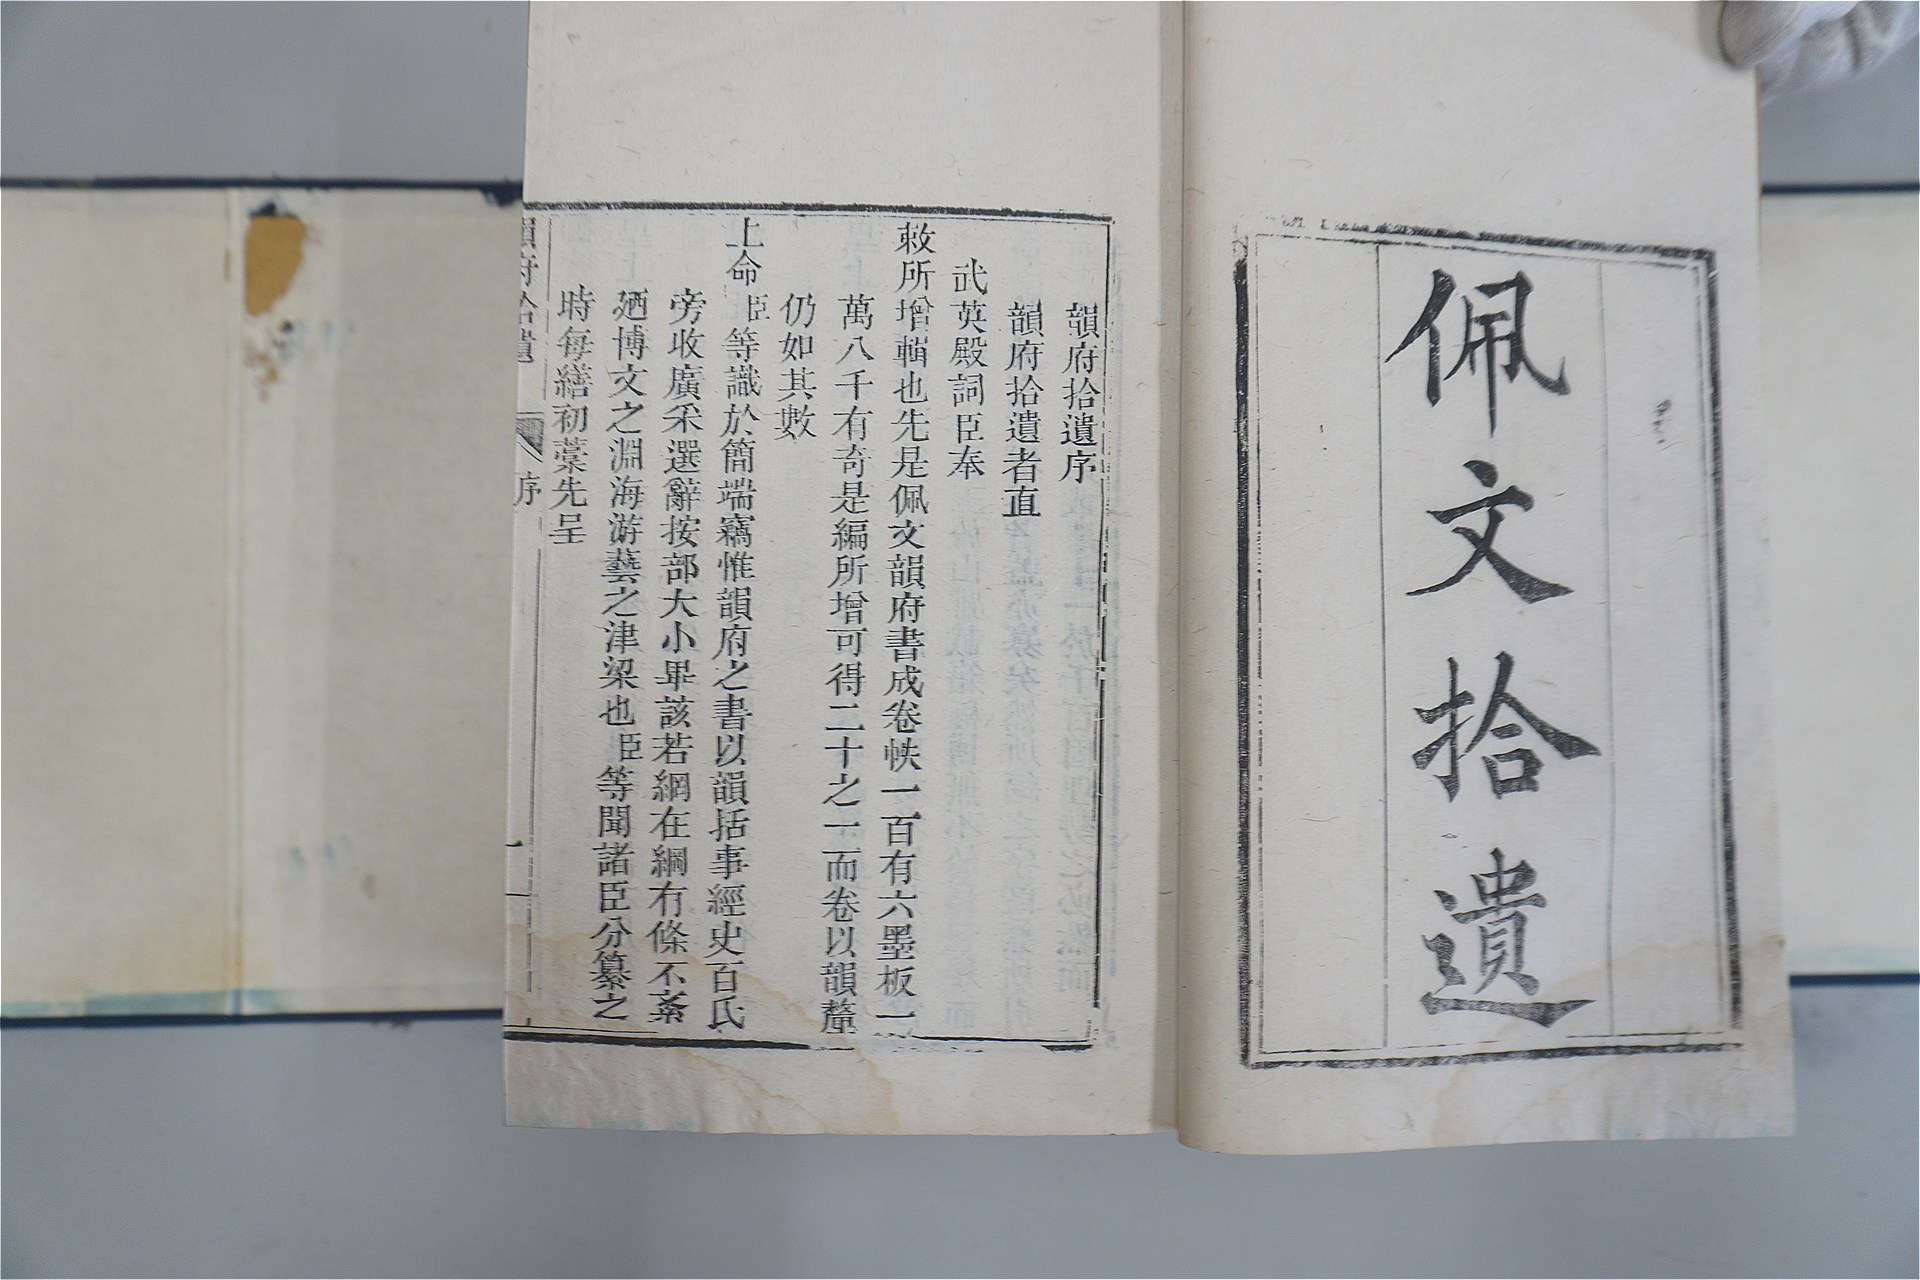 佩文拾遺
韻府拾遺序
韻府拾遺者直
武英殿詞臣奉
敕所增輯也先是佩文韻府書成卷帙一百有六墨板一
萬八千有奇是編所增可得二十之一而卷以韻釐
仍如其數
上命臣等識於簡端竊惟韻府之書以韻括事經史百氏
旁收廣采選辭按部大小畢該若網在綱有條不紊
廼博文之淵海游藝之津梁也臣等聞諸臣分纂之
時每繕初藁先呈
韻府拾遺
序
一